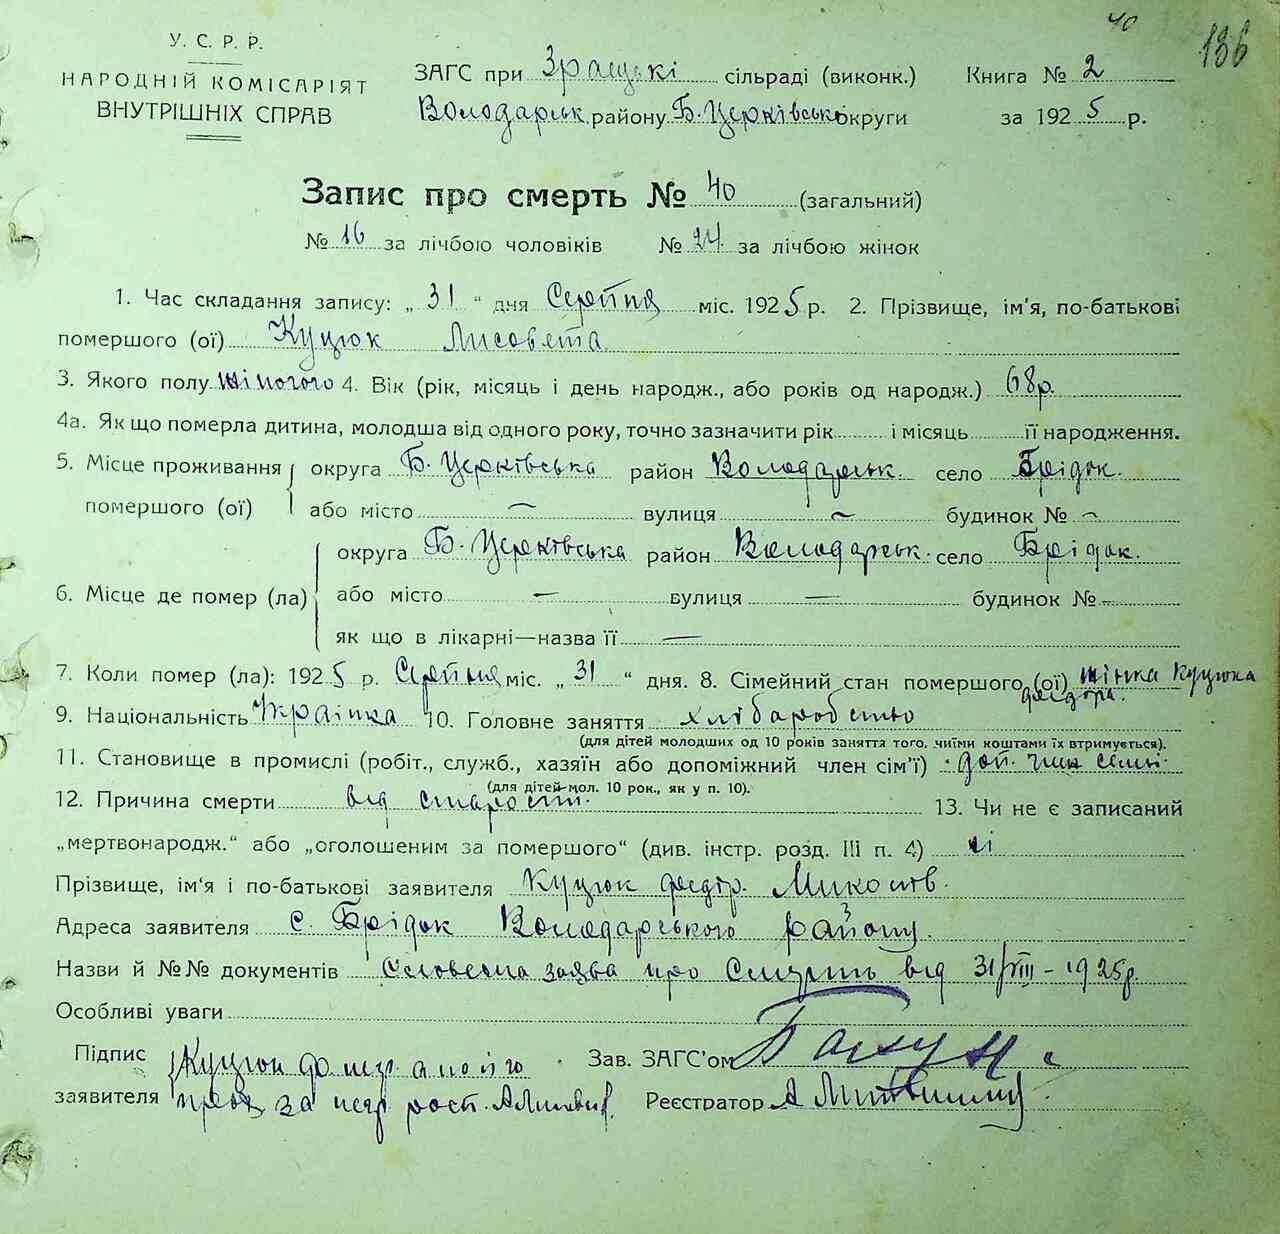 40
136
У. С. Р. Р.
НАРОДНІЙ КОМІСАРІЯТ
ВНУТРІШНІХ СПРАВ
ЗАГС при сільраді (виконк.) Книга № 2
Володарськ. району Б. Церківської округи за 1925 р.
Запис про смерть № 40 (загальний)
№ 16 за лічбою чоловіків № 24 за лічбою жінок
1. Час складання запису: „ 31 “ дня Серпня міс. 1925 р. 2. Прізвище, ім'я, по-батькові
помершого (ої) Куцюк Лисовета
3. Якого полу жіночого 4. Вік (рік, місяць і день народж., або років од народж.) 68 р.
4а. Як що померла дитина, молодша від одного року, точно зазначити рік і місяць її народження.
5. Місце проживання округа Б. Церківська район Володарськ. село Брідок.
помершого (ої) або місто — вулиця — будинок № —
округа Б. Церківська район Володарськ. село Брідок.
6. Місце де помер (ла) або місто — вулиця — будинок № —
як що в лікарні—назва її —
7. Коли помер (ла): 1925 р. Серпня міс. „ 31 “ дня. 8. Сімейний стан помершого (ої) жінка Куцюка
Федора.
9. Національність Українка 10. Головне заняття хліборобство
(для дітей молодших од 10 років заняття того, чиїми коштами їх втримується).
11. Становище в промислі (робіт., служб., хазяїн або допоміжний член сім'ї) доп. член семьі.
(для дітей мол. 10 рок., як у п. 10).
12. Причина смерти від старости. 13. Чи не є записаний
„мертвонародж.“ або „оголошеним за помершого“ (див. інстр. розд. III п. 4) ні
Прізвище, ім'я і по-батькові заявителя Куцюк Федір.
Адреса заявителя с. Брідок Володарського району.
Назви й №№ документів Словесна заява про Смерть від 31/VIII - 1925 р.
Особливі уваги
Підпис Куцюк Зав. ЗАГС'ом
заявителя за Реєстратор